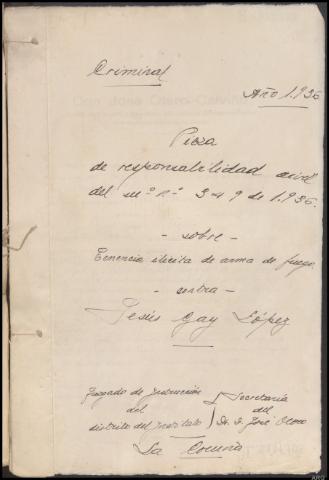 Criminal
Año 1.936
Pieza
de responsabilidad civil
del su.º n.º 349 de 1.936.
- sobre -
Tenencia ilicita de arma de fuego
- contra -
Jesús Gay López
Juzgado de Instrucción
del
distrito del Instituto
Secretaria
del
Dr. D. José Otero
La Coruña